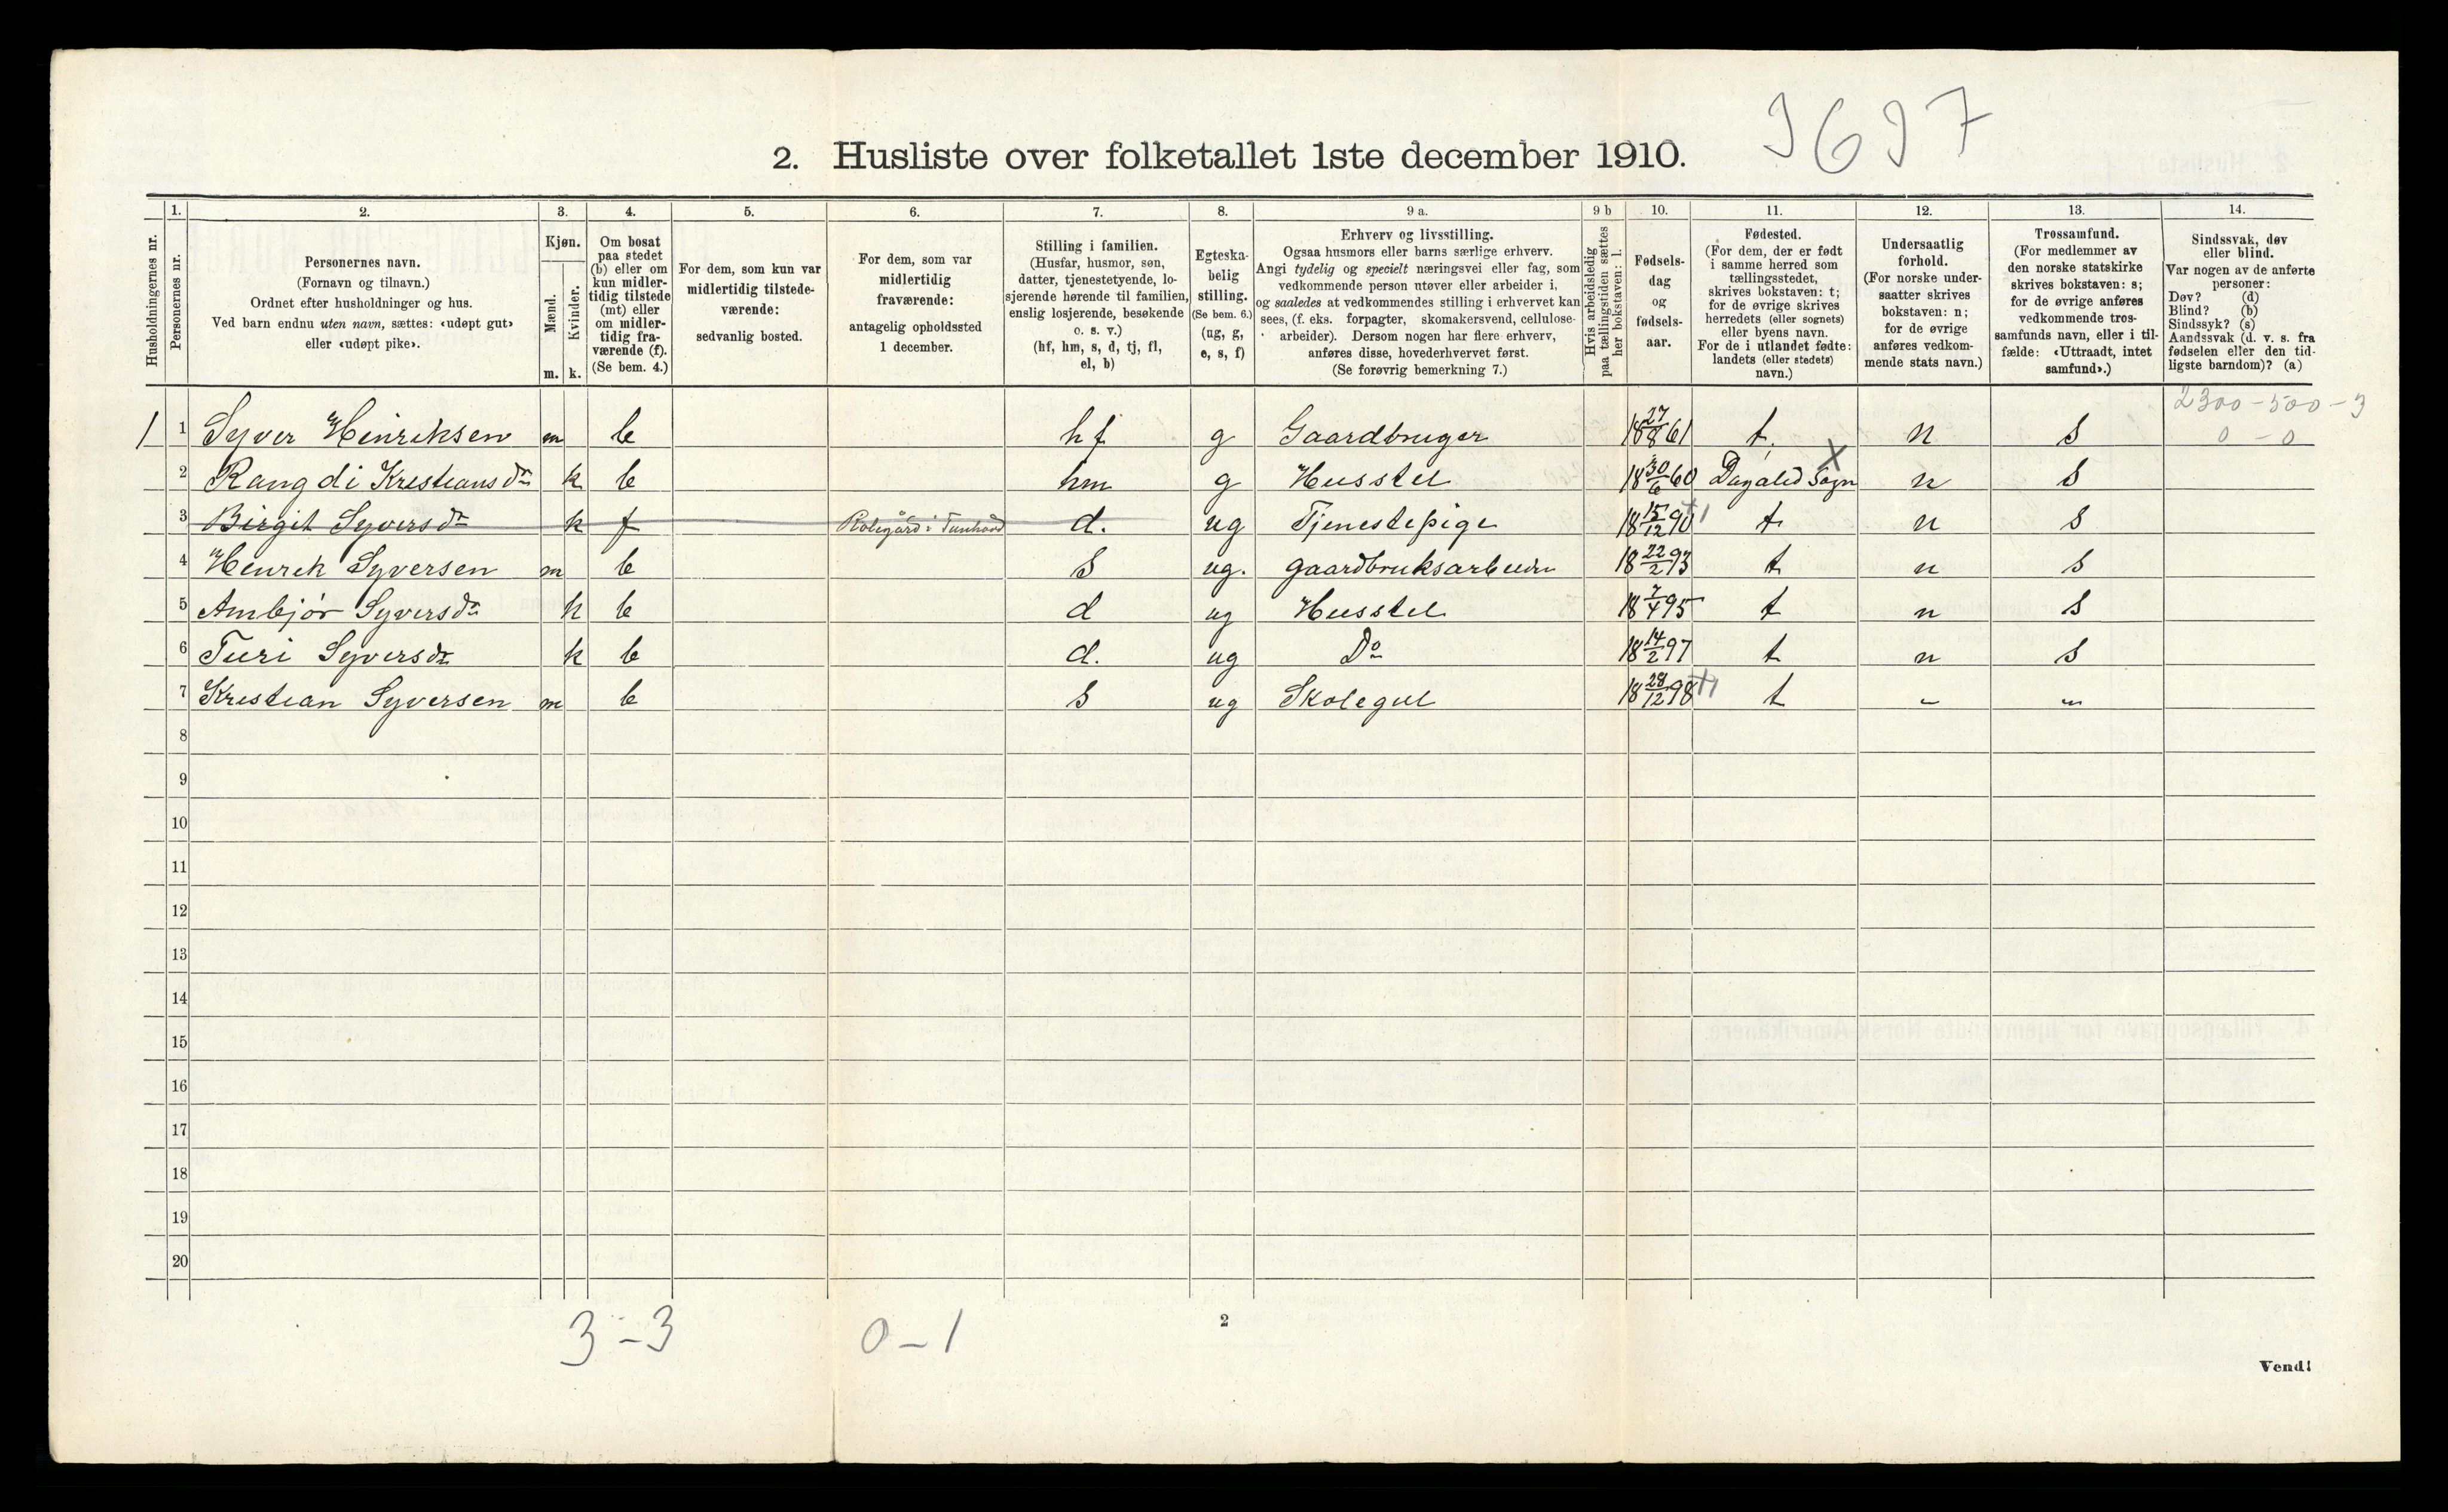 2. Husliste over folketallet 1ste december 1910.
1. 2. 3. 4. 5. 6. 7. 8. 9 a. 9 b 10. 11. 12. 13. 14.
Husholdningernes nr.
Personernes nr.
Personernes navn.
(Fornavn og tilnavn.)
Ordnet efter husholdninger og hus.
Ved barn endnu uten navn, sættes: «udøpt gut»
eller «udøpt pike».
Kjøn.
Mænd.
Kvinder.
m. k.
Om bosat
paa stedet
(b) eller om
kun midler-
tidig tilstede
(mt) eller
om midler-
tidig fra-
værende (f).
(Se bem. 4.)
For dem, som kun var
midlertidig tilstede-
værende:
sedvanlig bosted.
For dem, som var
midlertidig
fraværende:
antagelig opholdssted
1 december.
Stilling i familien.
(Husfar, husmor, søn,
datter, tjenestetyende, lo-
sjerende hørende til familien,
enslig losjerende, besøkende
o. s. v.)
(hf, hm, s, d, tj, fl,
el, b)
Egteska-
belig
stilling.
(Se bem. 6.)
(ug, g,
e, s, f)
Erhverv og livsstilling.
Ogsaa husmors eller barns særlige erhverv.
Angi tydelig og specielt næringsvei eller fag, som
vedkommende person utøver eller arbeider i,
og saaledes at vedkommendes stilling i erhvervet kan
sees, (f. eks. forpagter, skomakersvend, cellulose-
arbeider). Dersom nogen har flere erhverv,
anføres disse, hovederhvervet først.
(Se forøvrig bemerkning 7.)
Hvis arbeidsledig
paa tællingstiden sættes
her bokstaven: l.
Fødsels-
dag
og
fødsels-
aar.
Fødested.
(For dem, der er født
i samme herred som
tællingsstedet,
skrives bokstaven: t;
for de øvrige skrives
herredets (eller sognets)
eller byens navn.
For de i utlandet fødte:
landets (eller stedets)
navn.)
Undersaatlig
forhold.
(For norske under-
saatter skrives
bokstaven: n;
for de øvrige
anføres vedkom-
mende stats navn.)
Trossamfund.
(For medlemmer av
den norske statskirke
skrives bokstaven: s;
for de øvrige anføres
vedkommende tros-
samfunds navn, eller i til-
fælde: «Uttraadt, intet
samfund».)
Sindssvak, døv
eller blind.
Var nogen av de anførte
personer:
Døv? (d)
Blind? (b)
Sindssyk? (s)
Aandssvak (d. v. s. fra
fødselen eller den tid-
ligste barndom)? (a)
2300-500-3
0-0
1 1 Syver Henriksen m b hf g Gaardbruger 18 27/8 61 t. n S
2 Rangdi Kristiansdr k b hm g Husstel 18 30/6 60 Sogn n S
3 Birgit Syversdr k f i Tunhovd d. ug Tjenestepige 18 15/12 90 t n S
4 Henrik Syversen m b S ug. gaardbruksarbeider 18 22/2 93 t n S
5 Ambjør Syversdr k b d ug Husstel 18 7/4 95 t n S
6 Turi Syversdr k b d. ug Do 18 14/2 97 t n S
7 Kristian Syversen m b S ug Skolegut 18 28/12 98 t " "
8
9
10
11
12
13
14
15
16
17
18
19
20
3-3 0-1
2
Vend!